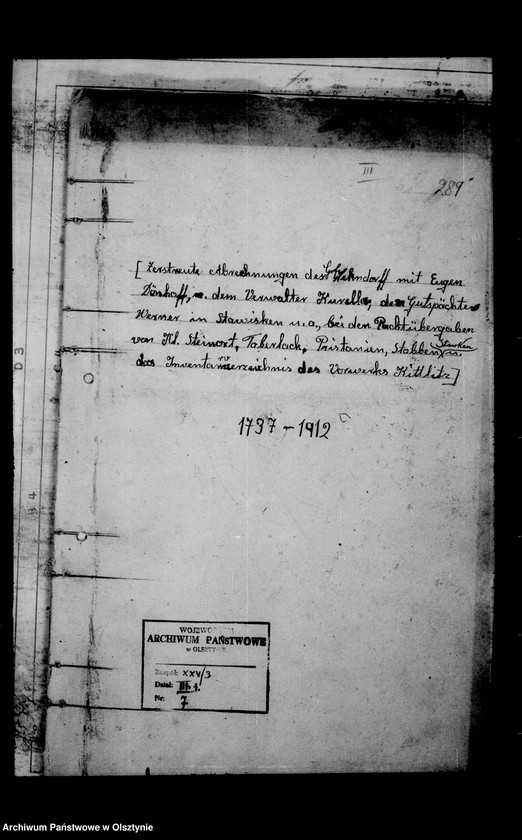 III
289
[Zerstreute Abrechnungen des Gfn Lehndorff mit Eugen
Dönhoff, u. dem Verwalter Kurella, dem Gutspächter
Werner in Stawisken u.a., bei den Pachtübergaben
von Kl. Steinort, Taberlack, Pristanien, Stobben, Sturken u.
das Inventarverzeichnis des Vorwerks Kittlitz]
1737 – 1912
WOJEWÓDZKIE
ARCHIWUM PAŃSTWOWE
w OLSZTYNIE
Zespół: XXV/3
Dział: III. 1.
Nr: 7
D 3
B 4
Archiwum Państwowe w Olsztynie